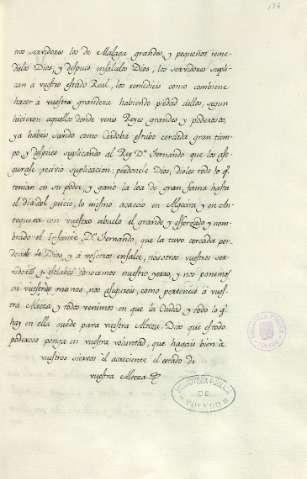 174
nos servidores los de Malaga grandes y pequeños reme-
dielos Dios, y despues ensalcelos Dios, los servidores supli-
can a vuestro estado Real, los remedieis como combiene
hacer a vuestra grandeza habiendo piedad dellos, segun
hicieron aquellos donde venis Reyes grandes y poderosos,
ya habeis savido como Cordoba estubo cercada gran tiem-
po y despues suplicando al Rey Dn. Fernando que los ase-
gurase recivio suplicacion perdonele Dios, dioles todo lo q.
tenian en su poder, y ganó la loa de gran fama hasta
el dia del juicio, lo mismo acaecio en Algecira y en otra
requesta con vuestro abuelo el grande y esforzado y nom-
brado el Infante Dn. Fernando, que la tuvo cercada
de Dios, y a nosotros ensalce, nosotros vuestros ser-
vidores y esclabos conocemos nuestro yerro, y nos ponemos
en vuestras manos, nos como pertenecia á vues-
tra Alteza, y todos venimos en que la Ciudad y todo lo q.
hay en ella quede para vuestra Alteza. Dios que es todo
poderoso ponga en vuestra voluntad, que hagais bien a
vuestros siervos él acreciente el estado de
vuestra Alteza &
BIBLIOTECA PUBLICA
DE
TOLEDO
BIBLIOTECA PUBLICA
TOLEDO